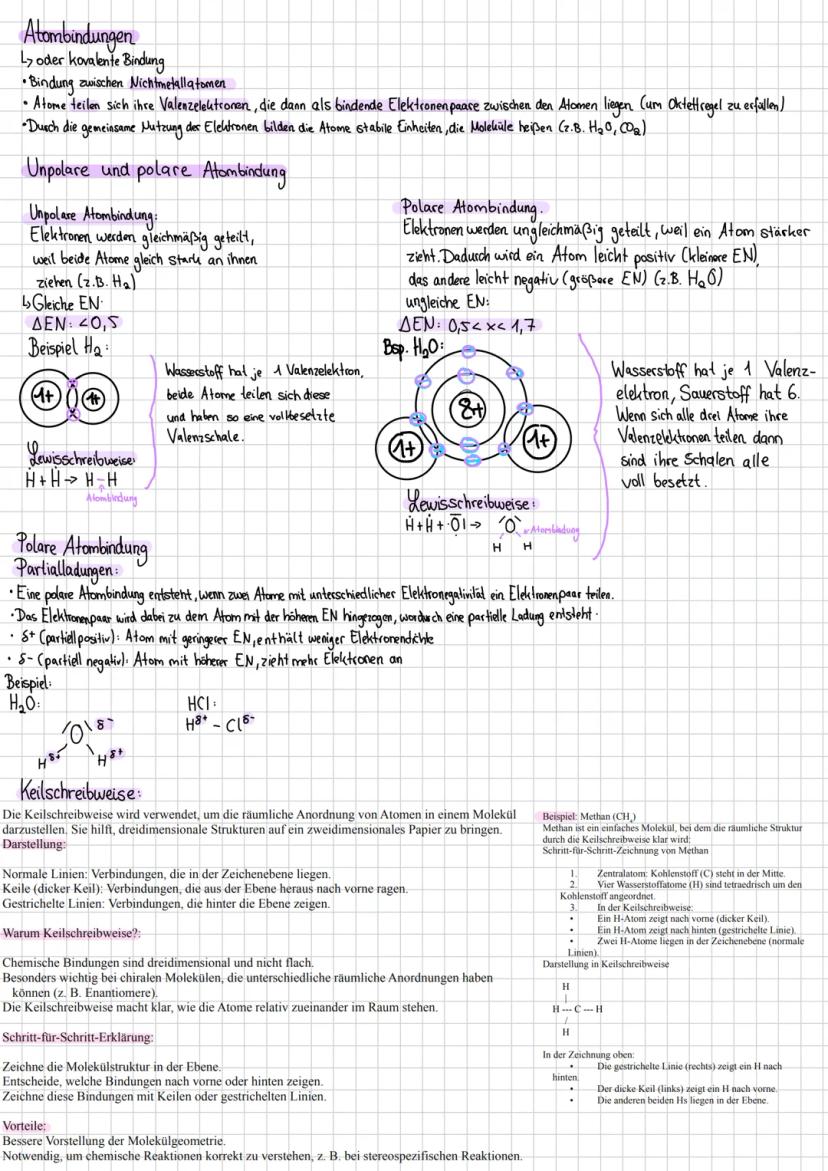 Atombindungen
↳ oder kovalente Bindung
• Bindung zwischen Nichtmetallatomen
• Atome teilen sich ihre Valenzelektronen, die dann als bindende Elektronenpaare zwischen den Atomen liegen (um Oktettregel zu erfüllen)
• Durch die gemeinsame Nutzung der Elektronen bilden die Atome stabile Einheiten, die Moleküle heißen (z.B. H₂O, CO₂)
Unpolare und polare Atombindung
Unpolare Atombindung:
Elektronen werden gleichmäßig geteilt,
weil beide Atome gleich stark an ihnen
ziehen (z.B. H₂)
↳ Gleiche EN:
ΔEN: <0,5
Beispiel H₂:
1+ 1+
Wasserstoff hat je 1 Valenzelektron,
beide Atome teilen sich diese
und haben so eine vollbesetzte
Valenzschale.
Lewisschreibweise:
Ḣ + Ḣ → H–H
Atombindung
Polare Atombindung.
Elektronen werden ungleichmäßig geteilt, weil ein Atom stärker
zieht. Dadurch wird ein Atom leicht positiv (kleinere EN),
das andere leicht negativ (größere EN) (z.B. H₂O)
ungleiche EN:
ΔEN: 0,5 < x < 1,7
Bsp. H₂O:
8+
1+ 1+
Wasserstoff hat je 1 Valenz-
elektron, Sauerstoff hat 6.
Wenn sich alle drei Atome ihre
Valenzelektronen teilen dann
sind ihre Schalen alle
voll besetzt.
Lewisschreibweise:
Ḣ + Ḣ + ·Ō| → O
Atombindung
H H
Polare Atombindung
Partialladungen:
• Eine polare Atombindung entsteht, wenn zwei Atome mit unterschiedlicher Elektronegativität ein Elektronenpaar teilen.
• Das Elektronenpaar wird dabei zu dem Atom mit der höheren EN hingezogen, wodurch eine partielle Ladung entsteht.
• δ+ (partiell positiv): Atom mit geringerer EN, enthält weniger Elektronendichte
• δ- (partiell negativ): Atom mit höherer EN, zieht mehr Elektronen an
Beispiel:
H₂O:
O δ-
H δ+ H δ+
HCl:
Hδ+ – Clδ-
Keilschreibweise:
Die Keilschreibweise wird verwendet, um die räumliche Anordnung von Atomen in einem Molekül
darzustellen. Sie hilft, dreidimensionale Strukturen auf ein zweidimensionales Papier zu bringen.
Darstellung:
Normale Linien: Verbindungen, die in der Zeichenebene liegen.
Keile (dicker Keil): Verbindungen, die aus der Ebene heraus nach vorne ragen.
Gestrichelte Linien: Verbindungen, die hinter die Ebene zeigen.
Warum Keilschreibweise?:
Chemische Bindungen sind dreidimensional und nicht flach.
Besonders wichtig bei chiralen Molekülen, die unterschiedliche räumliche Anordnungen haben
können (z. B. Enantiomere).
Die Keilschreibweise macht klar, wie die Atome relativ zueinander im Raum stehen.
Schritt-für-Schritt-Erklärung:
Zeichne die Molekülstruktur in der Ebene.
Entscheide, welche Bindungen nach vorne oder hinten zeigen.
Zeichne diese Bindungen mit Keilen oder gestrichelten Linien.
Vorteile:
Bessere Vorstellung der Molekülgeometrie.
Notwendig, um chemische Reaktionen korrekt zu verstehen, z. B. bei stereospezifischen Reaktionen.
Beispiel: Methan (CH₄)
Methan ist ein einfaches Molekül, bei dem die räumliche Struktur
durch die Keilschreibweise klar wird:
Schritt-für-Schritt-Zeichnung von Methan
1. Zentralatom: Kohlenstoff (C) steht in der Mitte.
2. Vier Wasserstoffatome (H) sind tetraedrisch um den
Kohlenstoff angeordnet.
3. In der Keilschreibweise:
• Ein H-Atom zeigt nach vorne (dicker Keil).
• Ein H-Atom zeigt nach hinten (gestrichelte Linie).
• Zwei H-Atome liegen in der Zeichenebene (normale
Linien).
Darstellung in Keilschreibweise
H
|
H --- C --- H
/
H
In der Zeichnung oben:
• Die gestrichelte Linie (rechts) zeigt ein H nach
hinten.
• Der dicke Keil (links) zeigt ein H nach vorne.
• Die anderen beiden Hs liegen in der Ebene.